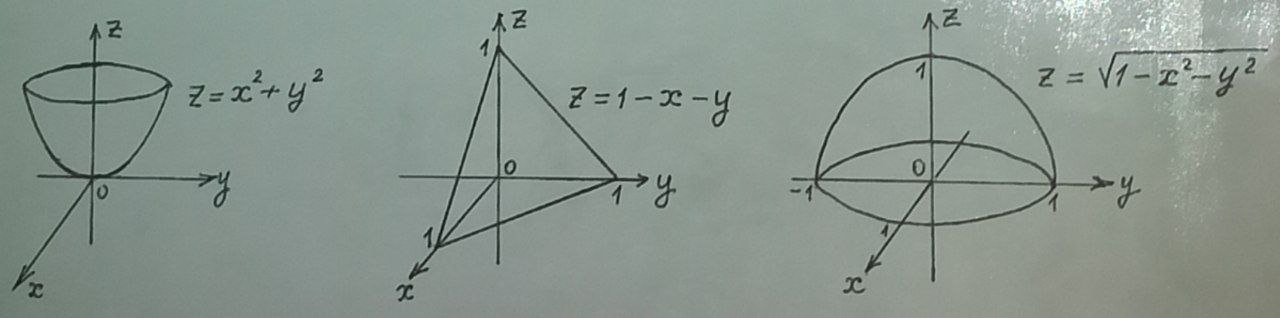 z
z=x²+y²
0
y
x
z
1
z=1-x-y
0
y
1
1
x
z
1
z=√1-x²-y²
0
-1
1
y
1
x